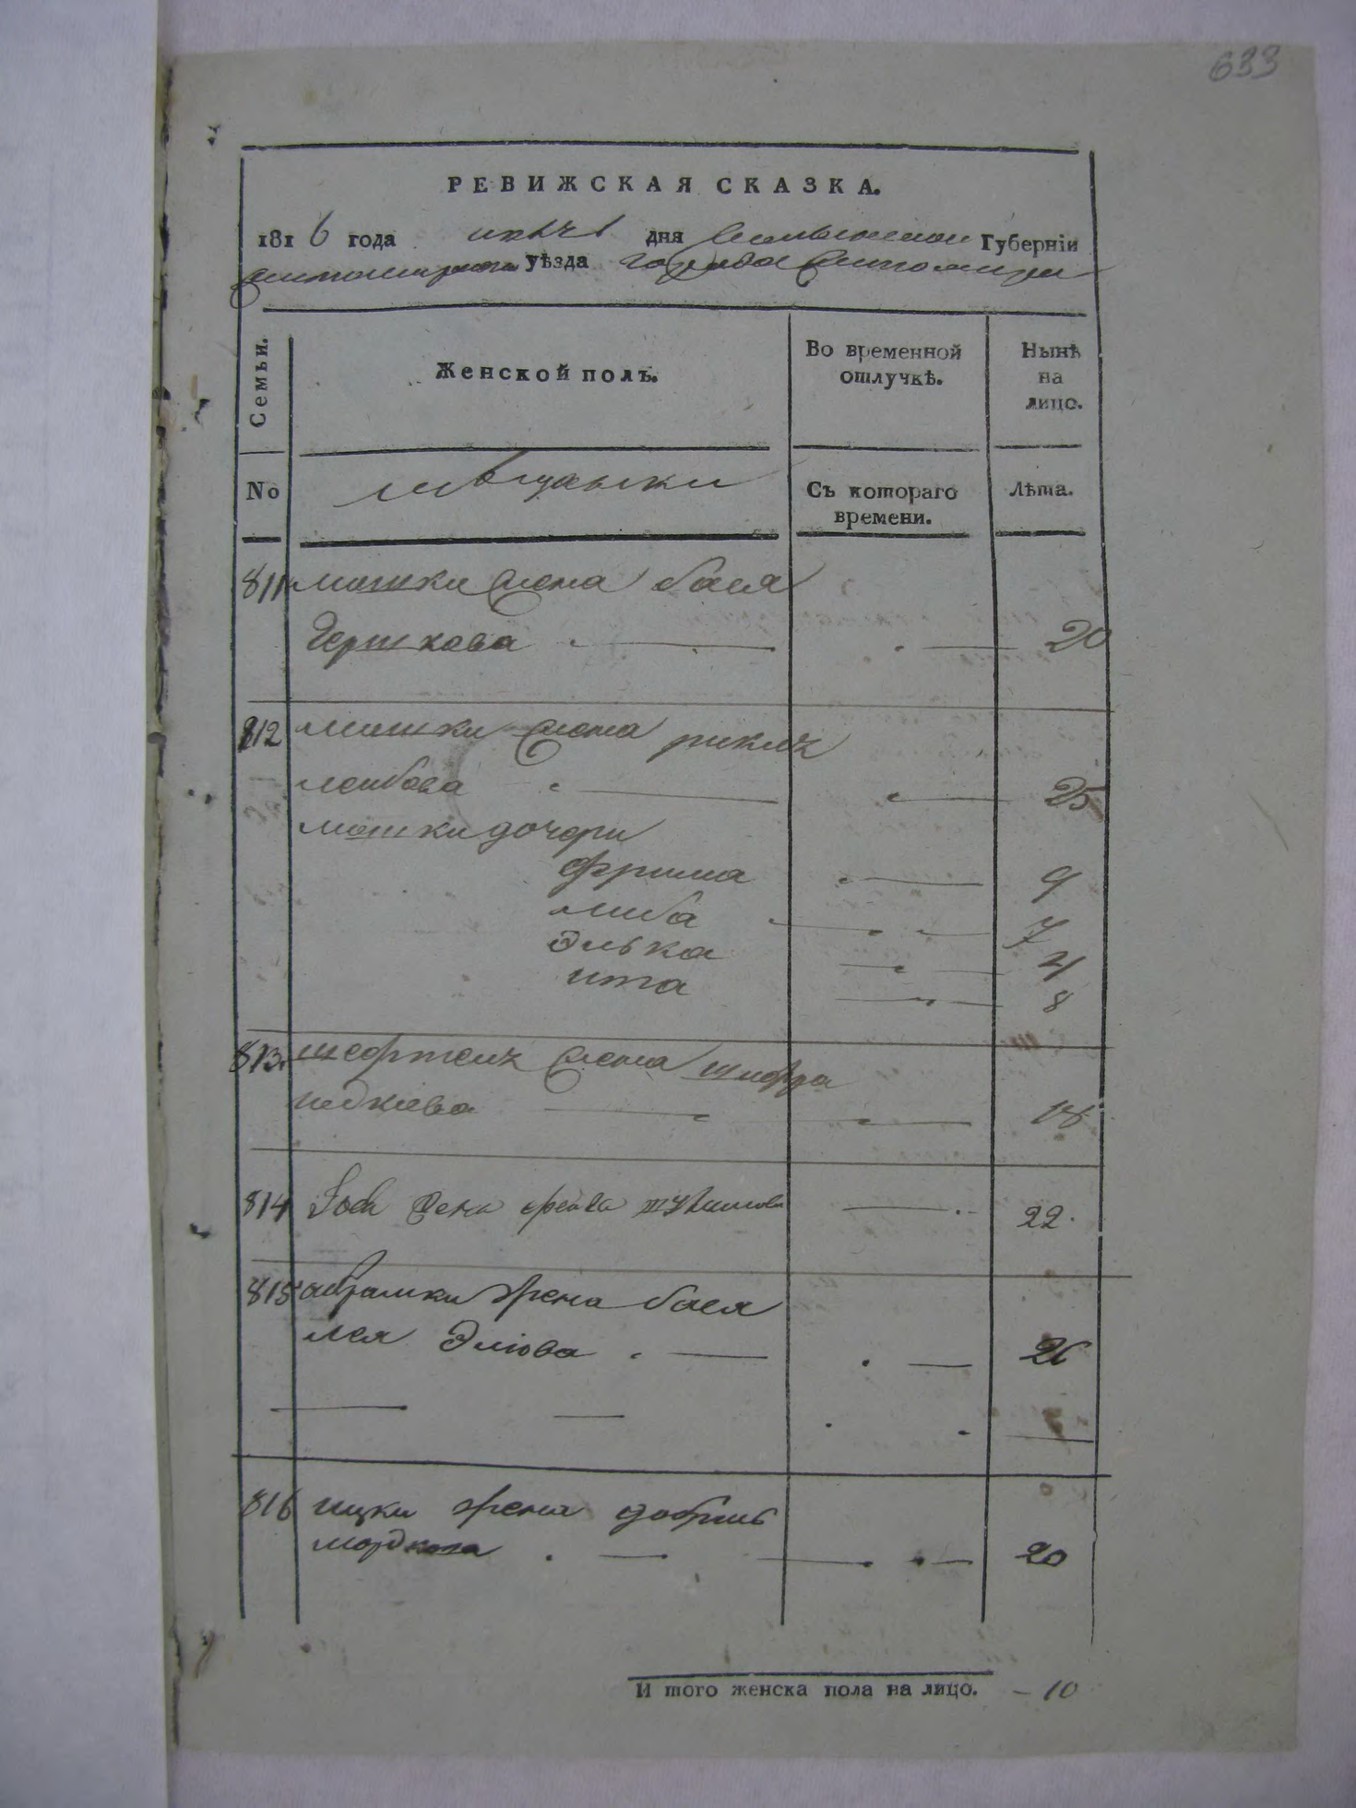 633
РЕВИЖСКАЯ СКАЗКА.
1816 года дня Волынской Губернiи
Житомирского уѣзда города Житомира
Семьи. Женской полъ. Во временной отлучкѣ. Нынѣ на лицо.
No мѣщанки Съ котораго времени. Лѣта.
811 мошки жена бася
Гершкова 20
812 мошки жена
лейбова 25
мошки дочери
фрима 9
либа 7
Элька 4
ита 8
813 жена
18
814 жена 22.
815 абрамки жена бася
лея Элiова 26
816 ицки жена добришъ
мордкова 20
И того женска пола на лицо. – 10